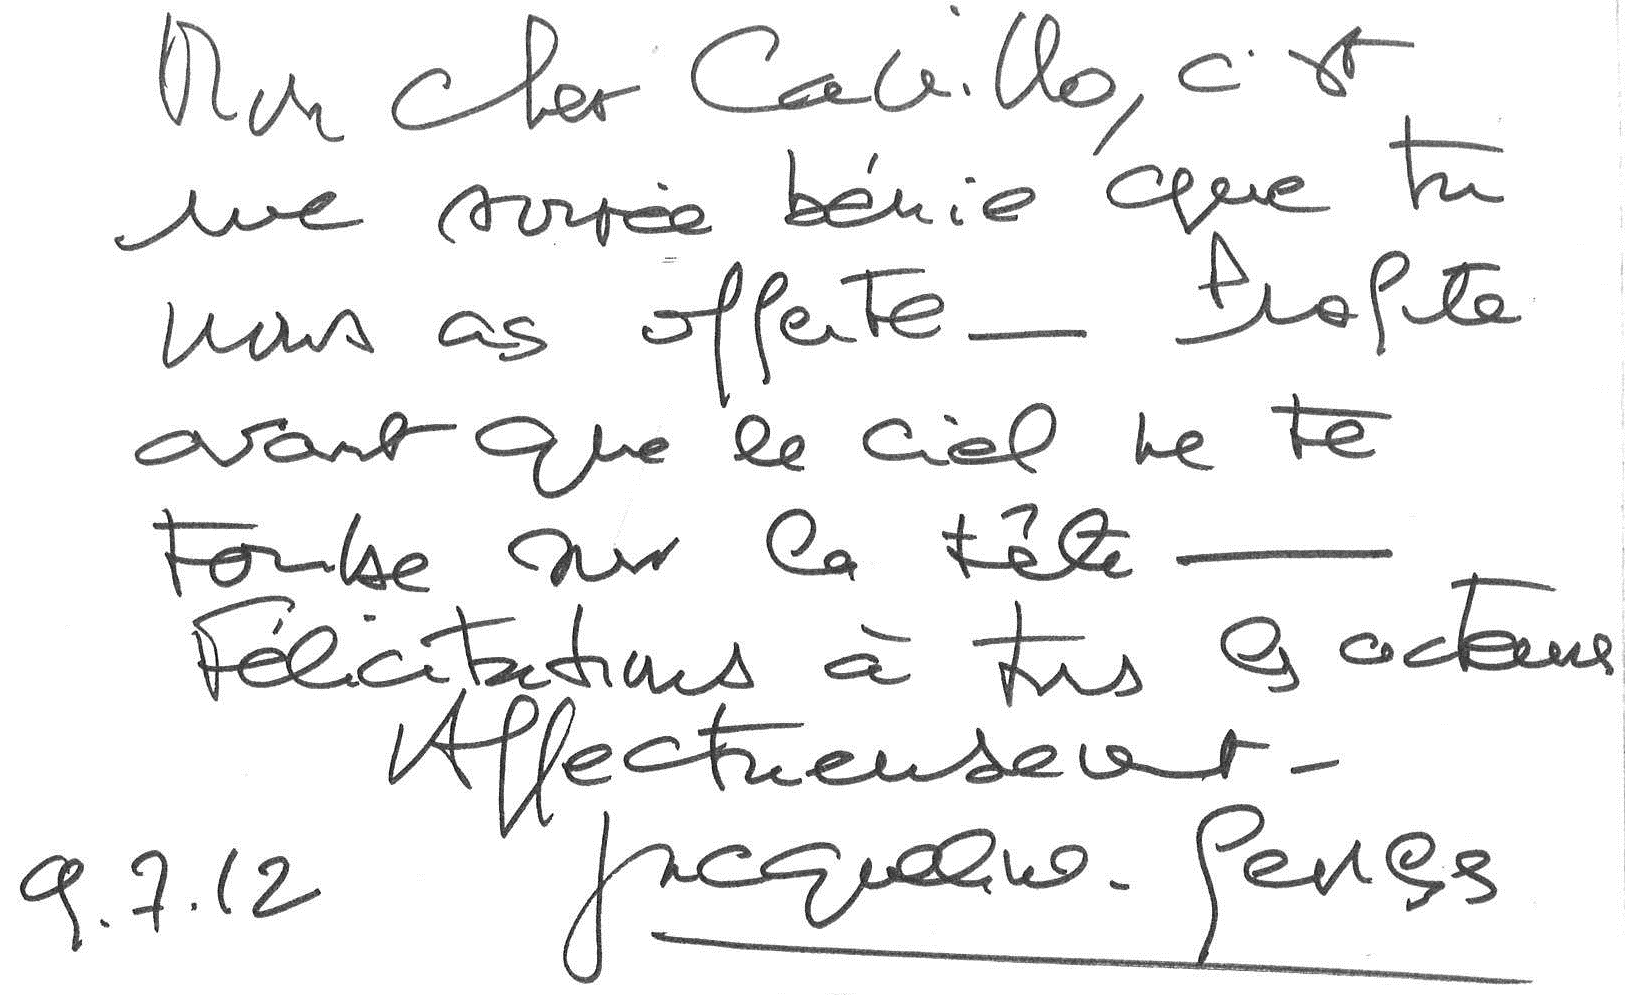 Mon cher Calvillo, c'est
une soirée bénie que tu
nous as offerte — Profite
avant que le ciel ne te
tombe sur la tête —
Félicitations à tous les acteurs
Affectueusement -
9.7.12 Jacqueline.